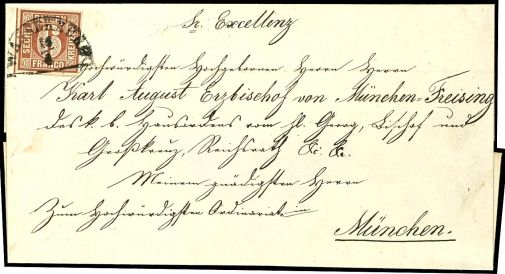 Sr. Excellenz
SECHS
KREUZER
FRANCO
6
Hochwürdigsten Hochgebornen Herrn Herrn
Karl August Erzbischof von München-Freising
des k. b. Hausordens vom hl. Georg, Bischof und
Großkreuz, Reichsrath &c. &c.
Meinem gnädigsten Herrn
Zum Hochwürdigsten Ordinariat
München.